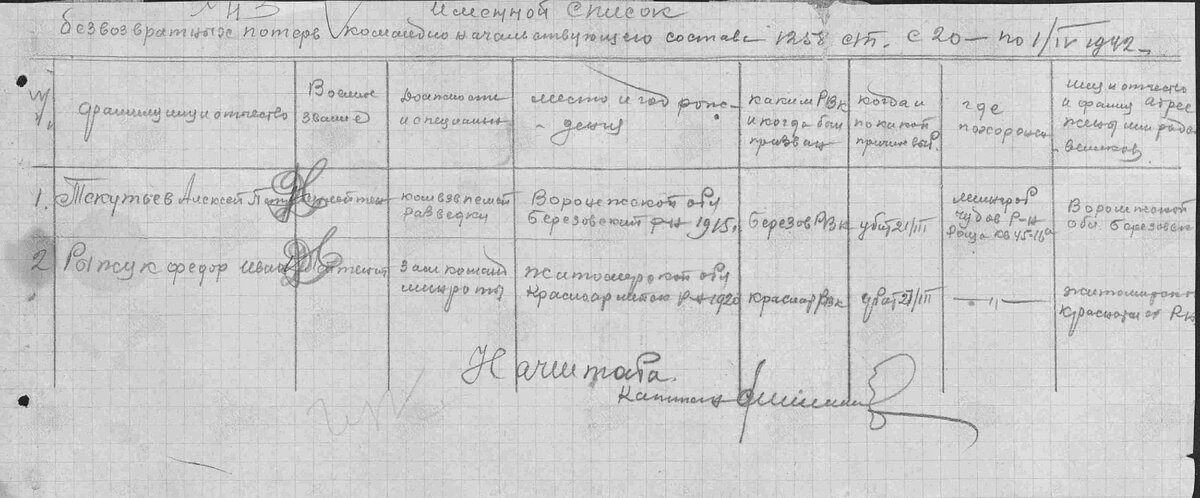 Именной список
безвозвратных потерь командно начальствующего состава 1258 сп. с 20 — по 1/IV 1942
фамилия имя и отчество
Воинск звание
Должность и специальн
место и год рождения
каким РВК и когда был призван
когда и по какой причине выб.
где похоронен
имя и отчество и фамил адрес жены или родственников
1. Текутьев Алексей
ком взв пешей разведки
Воронежской обл Березовский р-н 1915 г.
Березов РВК
убит 21/III
ленингр чудов р-н Роща кв 45-16а
Воронежской обл. Березовск
2 Рыжук федор иван
зам команд минроты
житомирской обл Красноармейск р-н 1920
Красноар РВК
убит 21/III
— " —
житомирско Красноарм р-н
Нач штаба
Капитан